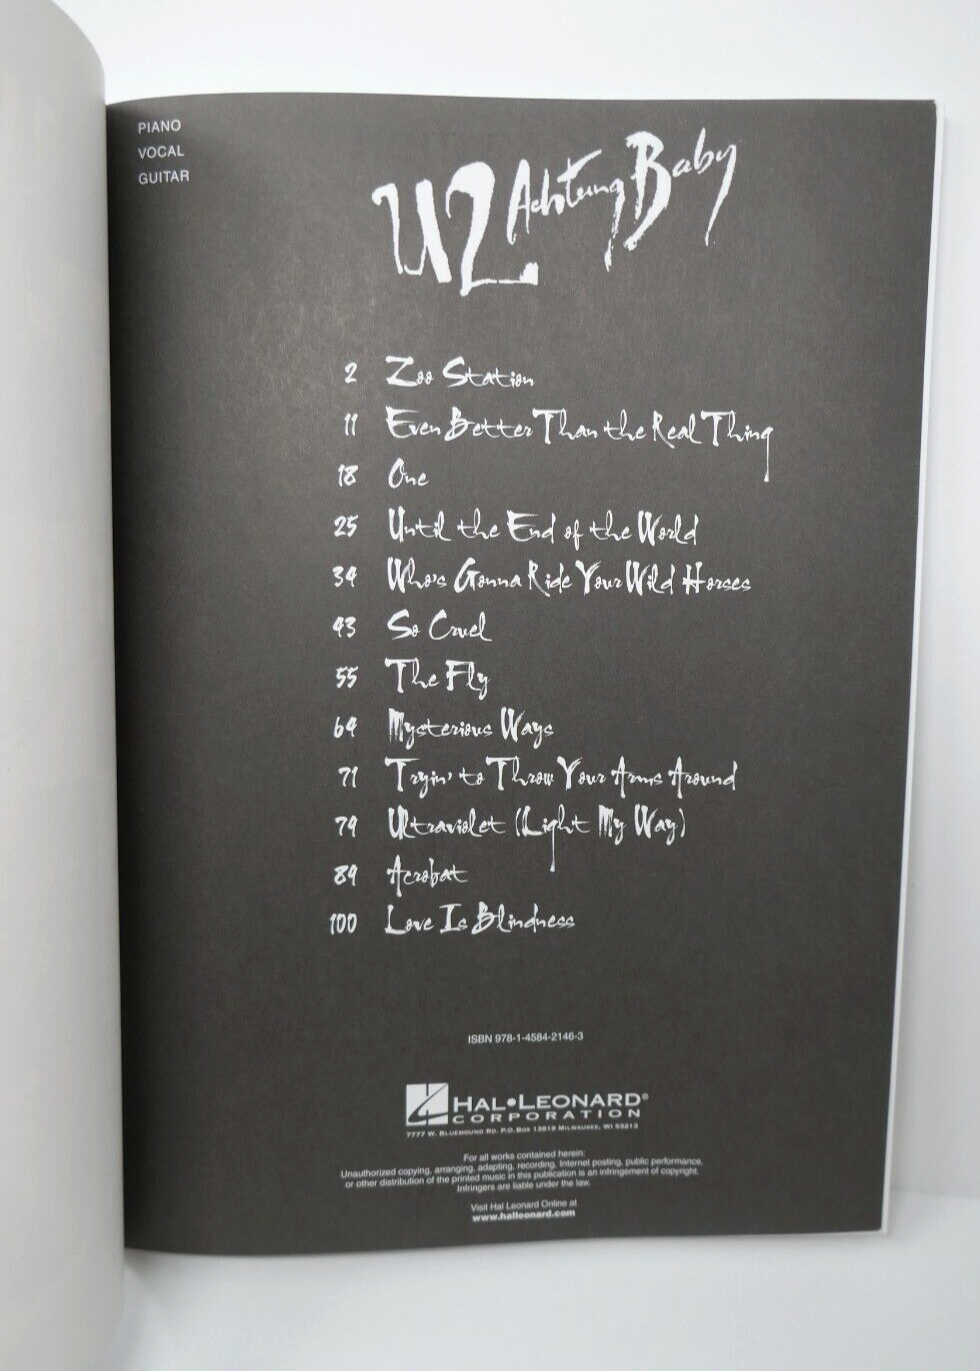 PIANO
VOCAL
GUITAR
U2 Achtung Baby
2 Zoo Station
11 Even Better Than the Real Thing
18 One
25 Until the End of the World
34 Who's Gonna Ride Your Wild Horses
43 So Cruel
55 The Fly
64 Mysterious Ways
71 Tryin' to Throw Your Arms Around
79 Ultraviolet (Light My Way)
89 Acrobat
100 Love Is Blindness
ISBN 978-1-4584-2146-3
HAL•LEONARD®
CORPORATION
7777 W. BLUEMOUND RD. P.O. BOX 13819 MILWAUKEE, WI 53213
For all works contained herein:
Unauthorized copying, arranging, adapting, recording, Internet posting, public performance,
or other distribution of the printed music in this publication is an infringement of copyright.
Infringers are liable under the law.
Visit Hal Leonard Online at
www.halleonard.com